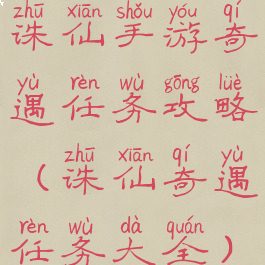 zhū xiān shǒu yóu qí
诛仙手游奇
yù rèn wù gōng lüè
遇任务攻略
zhū xiān qí yù
（诛仙奇遇
rèn wù dà quán
任务大全）